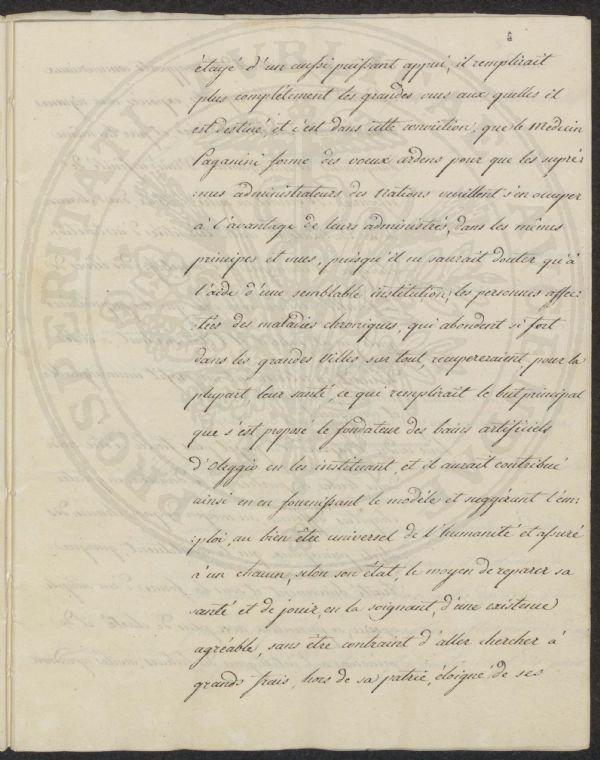 4
étayé d'un aussi puissant appui, il remplirait
plus complétement les grandes vues aux quelles il
est destiné, et c'est dans cette conviction, que le Médecin
Paganini forme des voeux ardens pour que les supré:
:mes administrateurs des Nations veuillent s'en occuper
à l'avantage de leurs administrés, dans les mêmes
principes et vues, puisqu'il ne saurait douter qu'à
l'aide d'une semblable institution, les personnes affec:
:tées des maladies chroniques, qui abondent si fort
dans les grandes Villes sur tout, recupereraient, pour la
plupart, leur santé, ce qui remplirait le but principal
que s'est proposé le fondateur des bains artificiels
d'Oleggio en les instituant, et il aurait contribué
ainsi en en fournissant le modéle et suggérant l'em:
:ploi, au bien être universel de l'humanité et assuré
à un chacun, selon son état, le moyen de reparer sa
santé et de jouir, en la soignant, d'une existence
agréable, sans être contraint d'aller chercher à
grands frais, hors de sa patrie, éloigné de ses
PROSPERITATI PUBLICAE